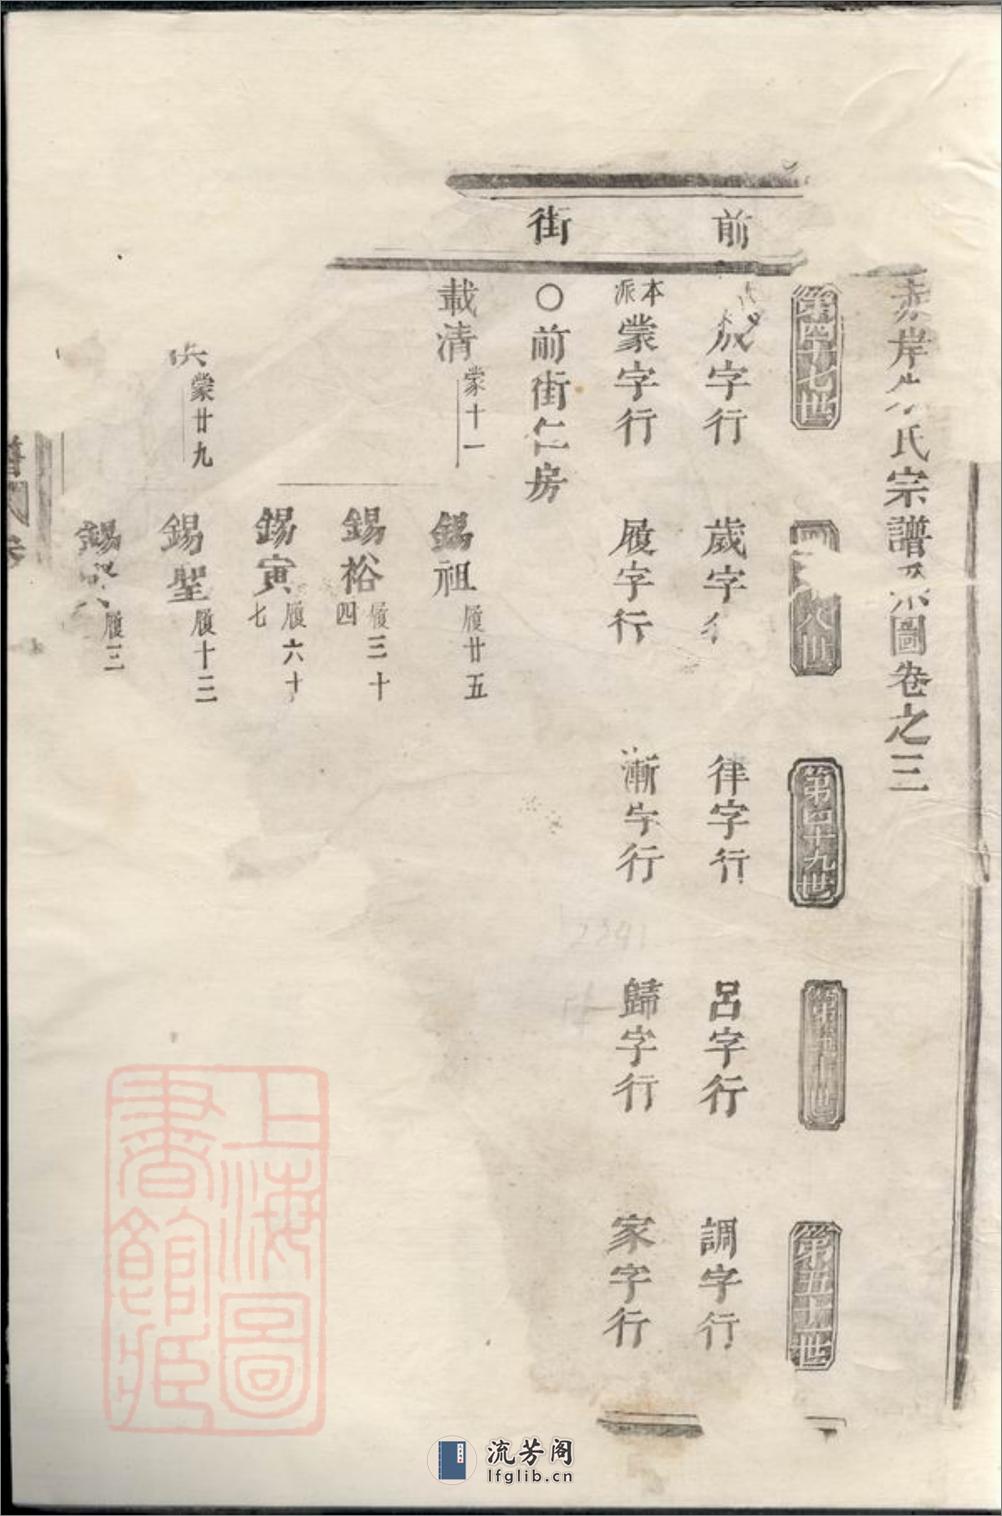 赤岸朱氏宗譜系圖卷之三
第四十七世
第五十世
第四十九世
第五十一世
前
成字行
歲字行
律字行
呂字行
調字行
本派蒙字行
履字行
漸字行
歸字行
家字行
街
○前街仁房
載清 蒙十一
錫祖 履廿五
錫裕 履三十四
錫寅 履六十七
蒙廿九
錫聖 履十三
錫 履三
上海圖書館藏
流芳阁
lfglib.cn